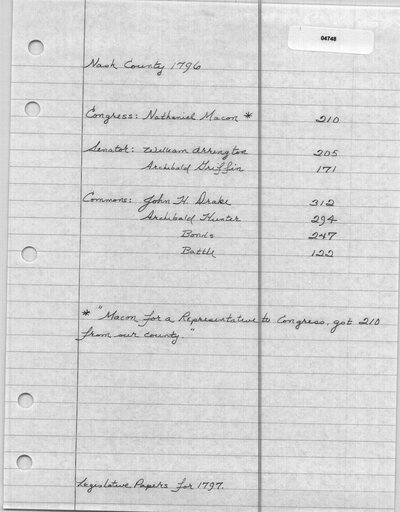 04748
Nash County 1796
Congress: Nathaniel Macon * 210
Senator: William Arrington 205
Archibald Griffin 171
Commons: John H. Drake 312
Archibald Hunter 294
Bonds 247
Battle 122
* "Macon for a Representative to Congress, got 210
from our county."
Legislative Papers for 1797.